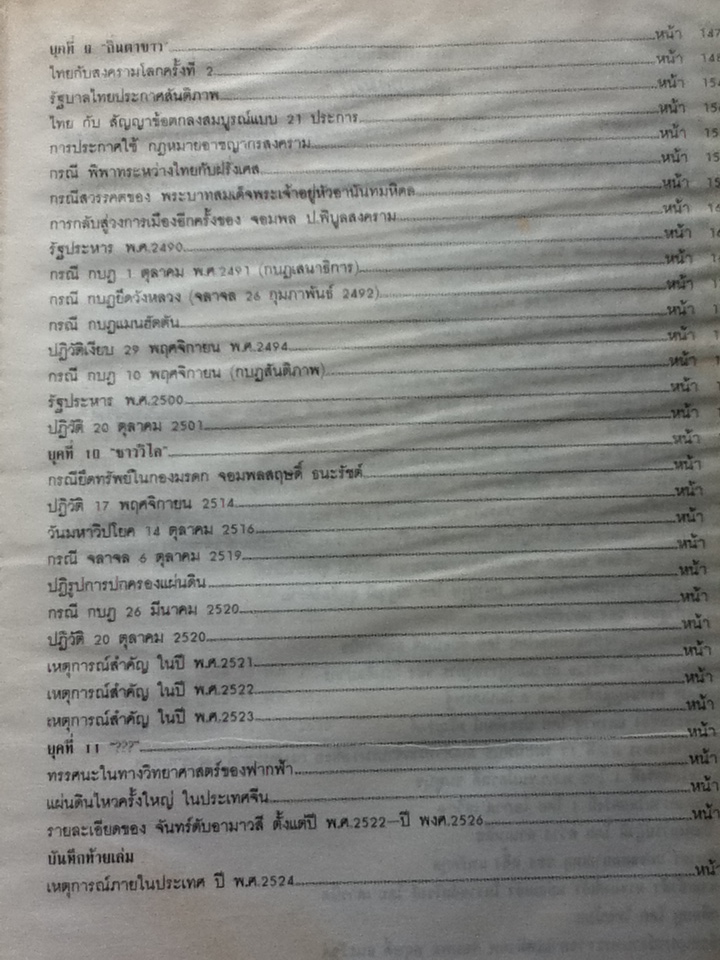 ยุคที่ 8 "ถิ่นตาขาว" หน้า 147
ไทยกับสงครามโลกครั้งที่ 2 หน้า 148
รัฐบาลไทยประกาศสันติภาพ หน้า
ไทย กับ สัญญาข้อตกลงสมบูรณ์แบบ 21 ประการ หน้า
การประกาศใช้ กฎหมายอาชญากรสงคราม หน้า
กรณี พิพาทระหว่างไทยกับฝรั่งเศส หน้า
กรณีสวรรคตของ พระบาทสมเด็จพระเจ้าอยู่หัวอานันทมหิดล หน้า
การกลับสู่วงการเมืองอีกครั้งของ จอมพล ป.พิบูลสงคราม หน้า
รัฐประหาร พ.ศ.2490 หน้า
กรณี กบฏ 1 ตุลาคม พ.ศ.2491 (กบฏเสนาธิการ) หน้า
กรณี กบฏยึดวังหลวง (จลาจล 26 กุมภาพันธ์ 2492) หน้า
กรณี กบฏแมนฮัตตัน หน้า
ปฏิวัติเงียบ 29 พฤศจิกายน พ.ศ.2494 หน้า
กรณี กบฏ 10 พฤศจิกายน (กบฏสันติภาพ) หน้า
รัฐประหาร พ.ศ.2500 หน้า
ปฏิวัติ 20 ตุลาคม 2501 หน้า
ยุคที่ 10 "ชาววิไล" หน้า
กรณียึดทรัพย์ในกองมรดก จอมพลสฤษดิ์ ธนะรัชต์ หน้า
ปฏิวัติ 17 พฤศจิกายน 2514 หน้า
วันมหาวิปโยค 14 ตุลาคม 2516 หน้า
กรณี จลาจล 6 ตุลาคม 2519 หน้า
ปฏิรูปการปกครองแผ่นดิน หน้า
กรณี กบฏ 26 มีนาคม 2520 หน้า
ปฏิวัติ 20 ตุลาคม 2520 หน้า
เหตุการณ์สำคัญ ในปี พ.ศ.2521 หน้า
เหตุการณ์สำคัญ ในปี พ.ศ.2522 หน้า
เหตุการณ์สำคัญ ในปี พ.ศ.2523 หน้า
ยุคที่ 11 "???" หน้า
ทรรศนะในทางวิทยาศาสตร์ของฟากฟ้า หน้า
แผ่นดินไหวครั้งใหญ่ ในประเทศจีน หน้า
รายละเอียดของ จันทร์ดับอามาวสี ตั้งแต่ปี พ.ศ.2522—ปี พงศ.2526 หน้า
บันทึกท้ายเล่ม
เหตุการณ์ภายในประเทศ ปี พ.ศ.2524 หน้า